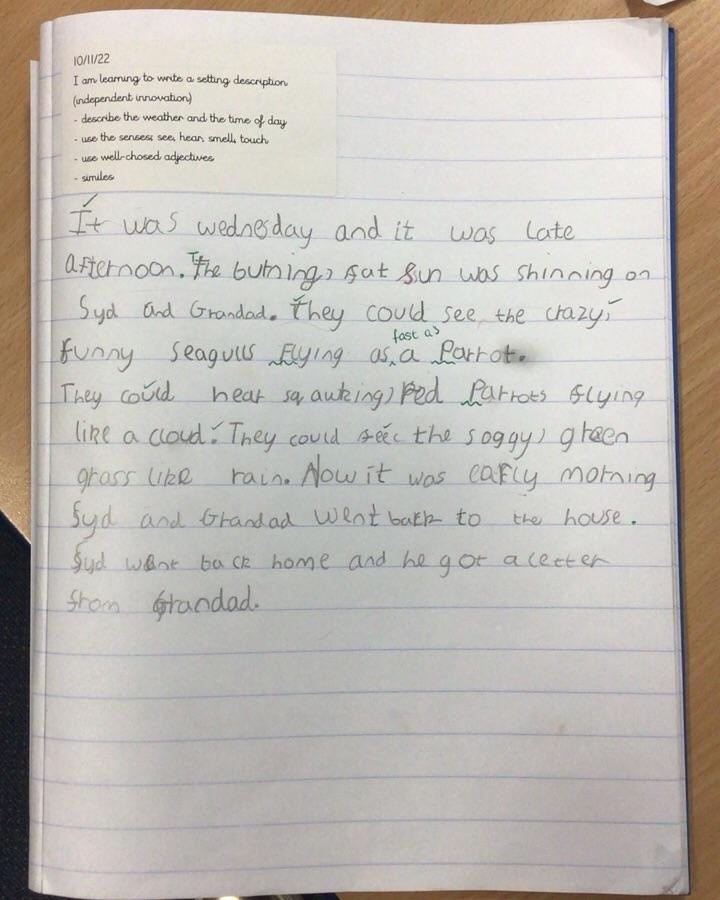 10/11/22
I am learning to write a setting description
(independent innovation)
- describe the weather and the time of day
- use the senses: see, hear, smell, touch
- use well-chosed adjectives
- similes
It was wednesday and it was late
afternoon. The burning, fat sun was shinning on
Syd and Grandad. They could see the crazy,
fast as
funny seagulls flying as a Parrot.
They could hear squawking, Red Parrots flying
like a cloud. They could the soggy, green
grass like rain. Now it was early morning
Syd and Grandad went back to the house.
Syd went back home and he got a letter
from Grandad.